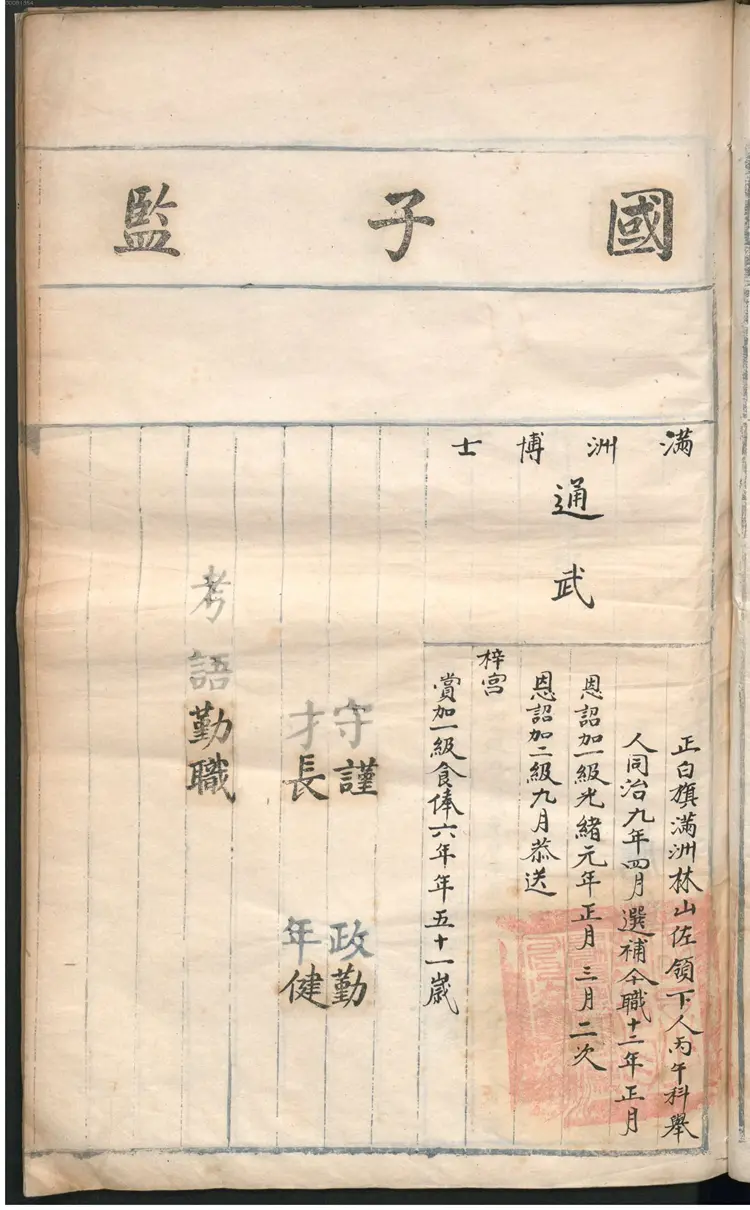 國子監
滿洲博士
通武
正白旗滿洲林山佐領下人丙午科舉
人同治九年四月選補今職十二年正月
恩詔加一級光緒元年正月三月二次
恩詔加二級九月恭送
梓宮
賞加一級食俸六年年五十一歲
守謹
政勤
才長
年健
考語勤職